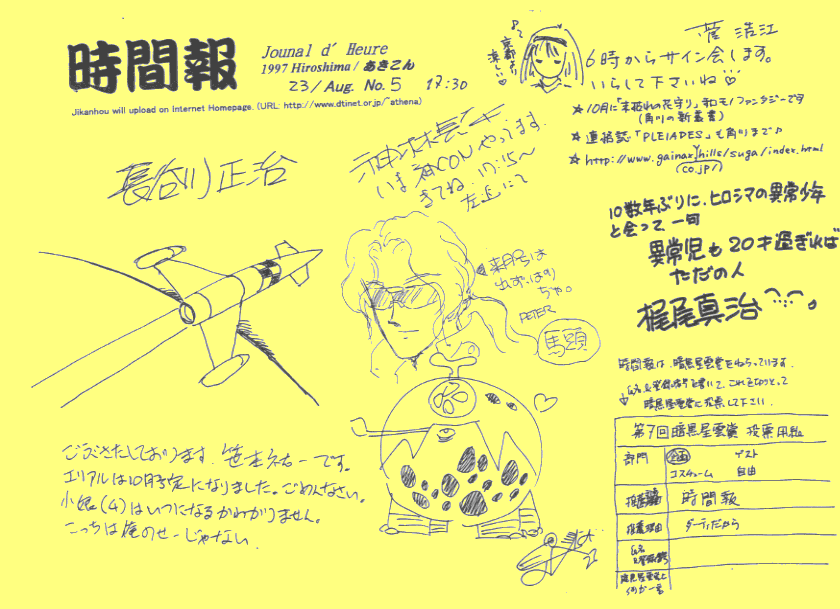 時間報
Jounal d' Heure
1997 Hiroshima / あきこん
23/Aug. No.5 17:30
Jikanhou will upload on Internet Homepage. (URL: http://www.dtinet.or.jp/~athena)
京都より
涼しい
菅 浩江
6時からサイン会します。
いらして下さいね
☆10月に「末枯れの花守り」和モノファンタジーです
(角川の新叢書)
☆連絡誌「PLEIADES」も
☆http://www.gainax/hills/suga/index.html
(co.jp/)
長谷川 正治
いま神CONやってます。
きてね 17:15〜
10数年ぶりに、ヒロシマの異常少年
と会って、一句
異常児も20才過ぎれば
ただの人
梶尾真治
来月号は
PETER
馬頭
ごぶさたしております。笹本祐一です。
エリアルは10月予定になりました。ごめんなさい。
小娘(4)はいつになるかわかりません。
こっちは俺のせーじゃない.
時間報は、暗黒星雲賞をねらっています.
氏名と登録番号を書いて、これを切りとって
暗黒星雲賞に投票して下さい.
第7回暗黒星雲賞 投票用紙
部門 企画 ゲスト
コスチューム 自由
時間報
投票理由 ダーティだから
氏名